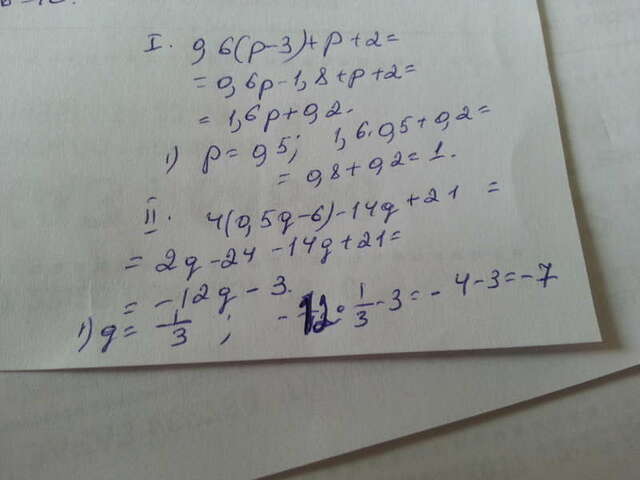 I. 0,6(p-3)+p+2=
= 0,6p-1,8+p+2=
= 1,6p+0,2.
1) p=0,5; 1,6·0,5+0,2=
= 0,8+0,2=1.
II. 4(0,5q-6)-14q+21 =
= 2q-24-14q+21=
= -12q-3.
1) q= 1/3 ; -12·1/3-3=-4-3=-7